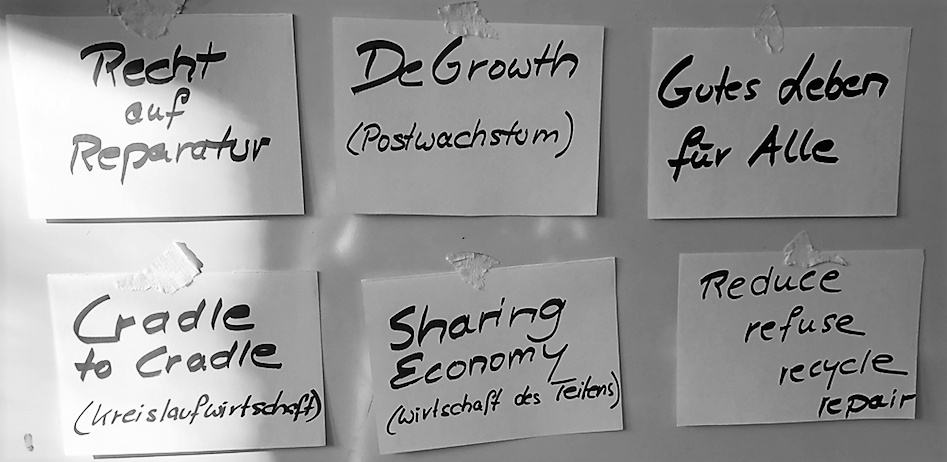 Recht
auf
Reparatur
DeGrowth
(Postwachstum)
Gutes Leben
für Alle
Cradle
to Cradle
(Kreislaufwirtschaft)
Sharing
Economy
(Wirtschaft des Teilens)
Reduce
refuse
recycle
repair